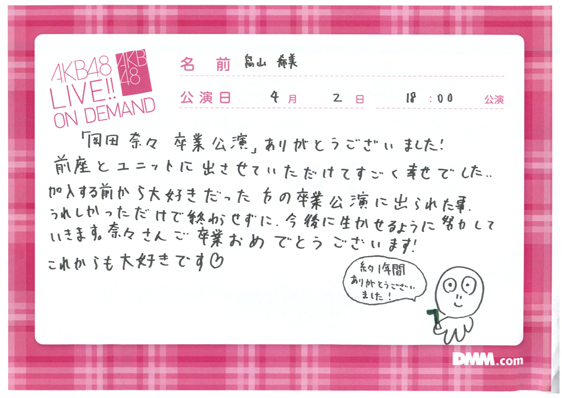 AKB48
LIVE!!
ON DEMAND
AKB
48
名前 畠山 希美
公演日 4月 2日 18:00 公演
「岡田 奈々 卒業公演」ありがとうございました!
前座とユニットに出させていただけてすごく幸せでした..
加入する前から大好きだった方の卒業公演に出られた事、
うれしかっただけで終わらせずに、今後に生かせるように努力して
いきます。奈々さんご卒業おめでとうございます!
これからも大好きです♡
約1年間
ありがとうござい
ました!
DMM.com